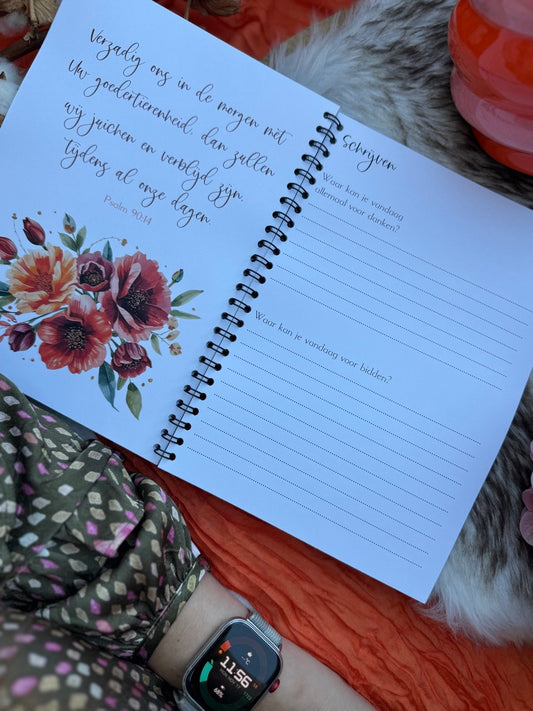 Verzadig ons in de morgen met
Uw goedertierenheid, dan zullen
wij juichen en verblijd zijn,
tijdens al onze dagen.
Psalm 90:14
Schrijven
Waar kan je vandaag
allemaal voor danken?
Waar kan je vandaag voor bidden?
11:56
68%